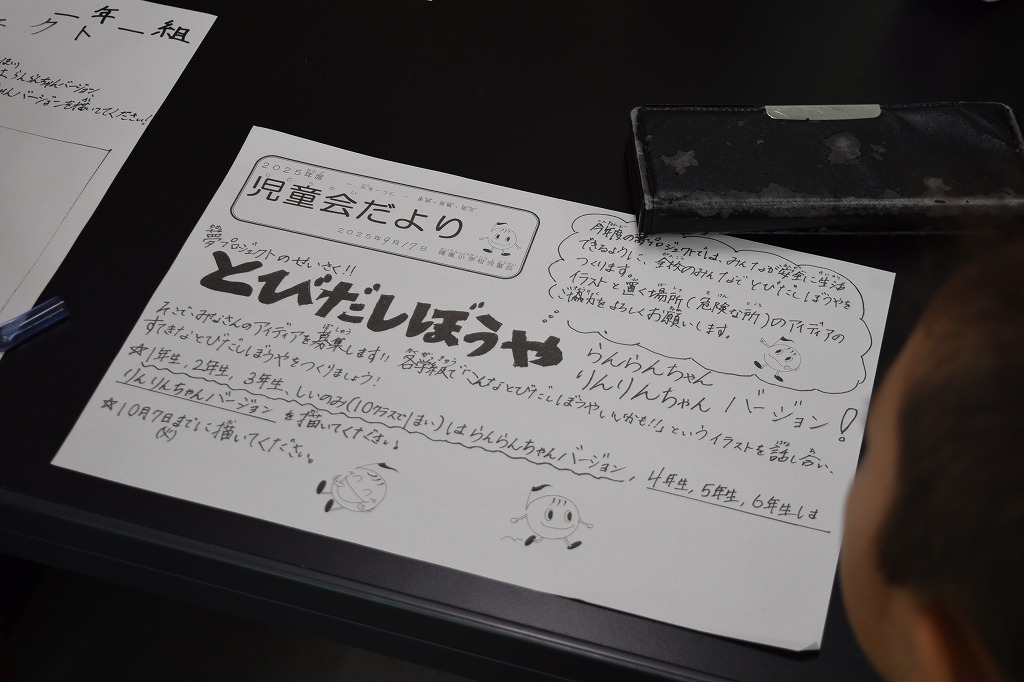 一年一組
クトー
らんらんちゃんバージョン、
ゃんバージョンを描いてください!
2025年度
児童会だより
2025年9月17日
夢プロジェクトのせいさく!!
とびだしぼうや
らんらんちゃん
りんりんちゃん バージョン!
今年度の夢プロジェクトでは、みんなが安全に生活
できるように、全校のみんなでとびだしぼうやを
つくります。
イラストと置く場所(危険な所)のアイディアの
ご協力をよろしくお願いします。
そこで、みなさんのアイディアを募集します!! 各学級で「こんなとびだしぼうやいいかも!!」というイラストを話し合い、
すてきなとびだしぼうやをつくりましょう!
☆1年生、2年生、3年生、しいのみ(10クラスで1まい)はらんらんちゃんバージョン、4年生,5年生,6年生は
りんりんちゃんバージョンを描いてください。
☆10月7日までに描いてください。
(火)